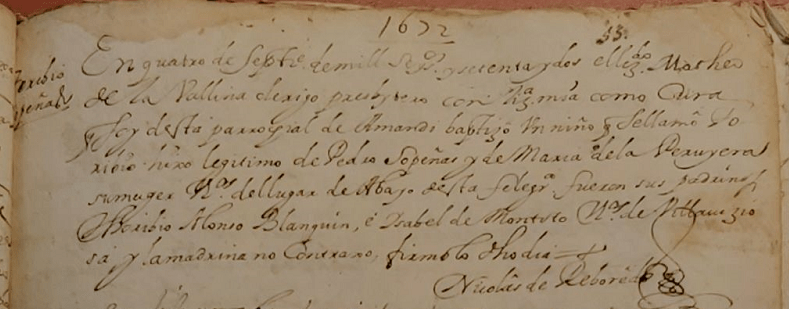 1672
53.
Toribio
Sopeñas
En quatro de Septe. de mill Seisos. y setenta y dos el lizdo. Matheo
de la Vallina clerigo presbytero con liza. mia como Cura
q soy desta parroqial de Amandi baptizo Un niño q se llamô To
ribio hixo legitimo de Pedro Sopeñas y de Maria de la Peruyera
su muger Vos. del lugar de Abajo desta felegra. fueron sus padrinos
Thoribio Alonso Blanquin, é Ysabel de Montoto Vos. de Villavizio
sa y la madrina no Contraxo, firmolo dho dia
Nicolas de Reboredo